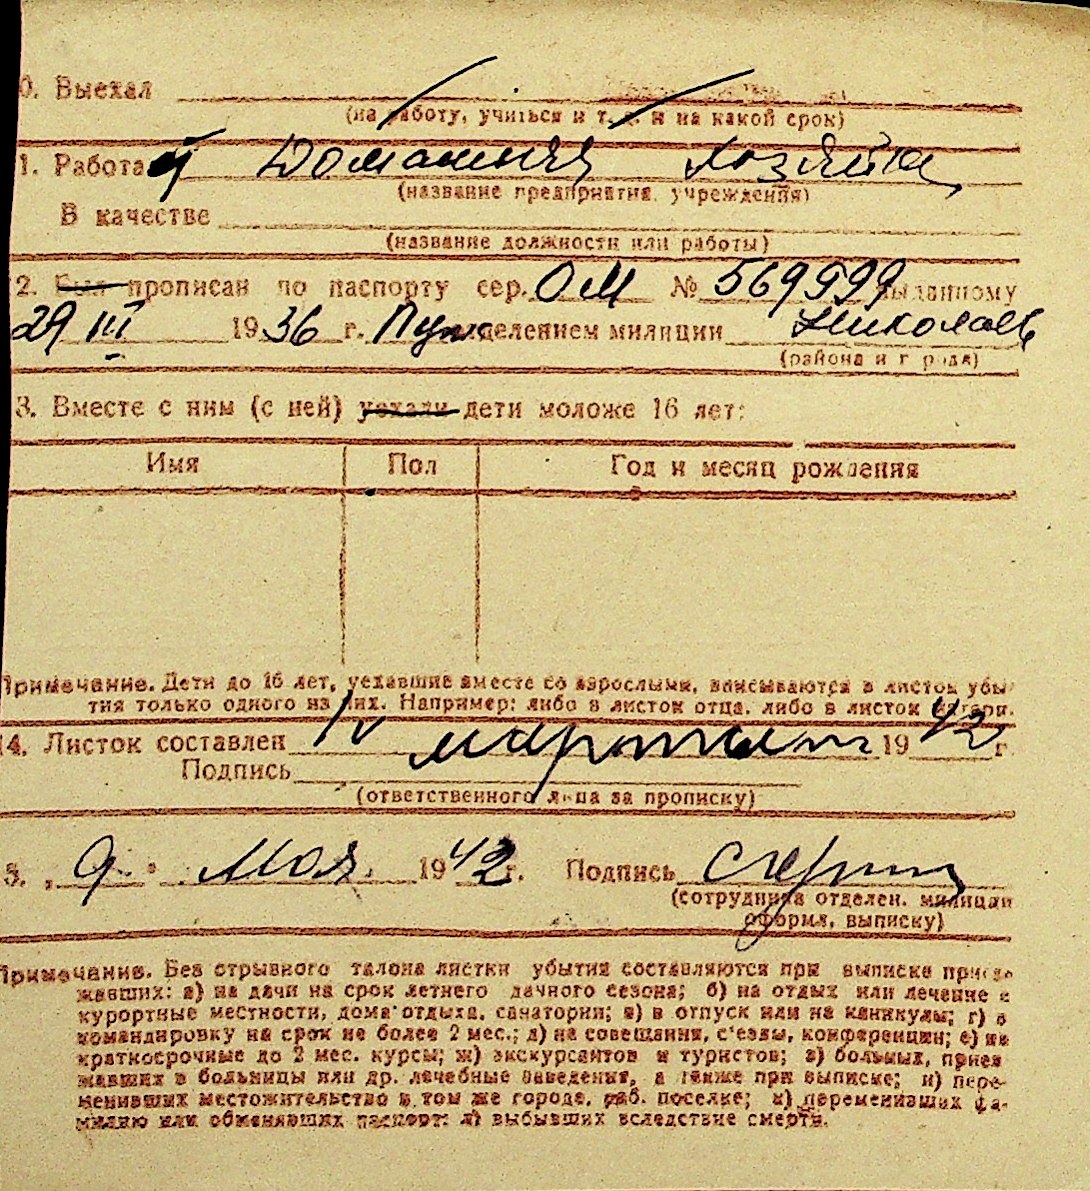 0. Выехал
(на работу, учиться и т. д. и на какой срок)
1. Работа Домашняя хозяйка
(название предприятия, учреждения)
В качестве
(название должности или работы)
2. Был прописан по паспорту сер. ОМ № 569999 выданному
29 III 1936 г. отделением милиции Николаев
(района и города)
3. Вместе с ним (с ней) уехали дети моложе 16 лет:
Имя Пол Год и месяц рождения
Примечание. Дети до 16 лет, уехавшие вместе со взрослыми, вписываются в листок убы-
тия только одного из них. Например: либо в листок отца, либо в листок матери.
14. Листок составлен марта 1942 г.
Подпись
(ответственного лица за прописку)
5. „9" мая 1942 г. Подпись
(сотрудника отделен. милиции
оформл. выписку)
Примечание. Без отрывного талона листки убытия составляются при выписке приез-
жавших: а) на дачи на срок летнего дачного сезона; б) на отдых или лечение в
курортные местности, дома отдыха, санатории; в) в отпуск или на каникулы; г) в
командировку на срок не более 2 мес.; д) на совещания, с'езды, конференции; е) на
краткосрочные до 2 мес. курсы; ж) экскурсантов и туристов; з) больных, приез
жавших в больницы или др. лечебные заведения, а также при выписке; и) пере-
менивших местожительство в том же городе, раб. поселке; к) переменивших фа-
милию или обменявших паспорт; л) выбывших вследствие смерти.